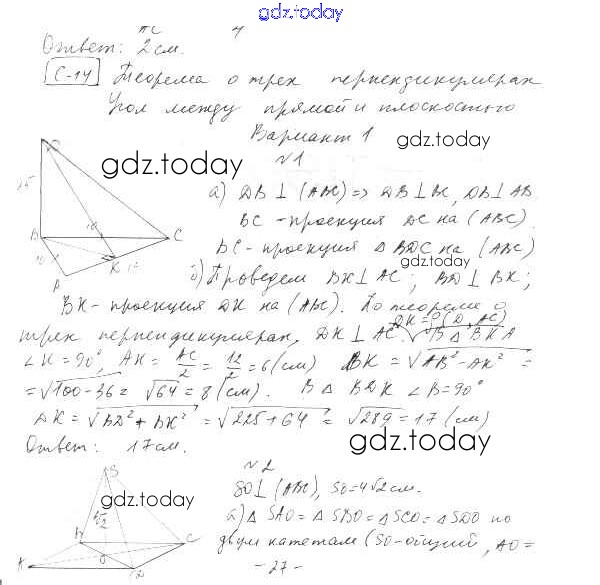 gdz.today
Ответ: 2 см.
С-14 Теорема о трех перпендикулярах
Угол между прямой и плоскостью
Вариант 1
gdz.today
№1
а) DB ⊥ (ABC) => DB ⊥ BC, DB ⊥ AB
BC - проекция DC на (ABC)
BC - проекция △ BDC на (ABC)
gdz.today
б) Проведем BK ⊥ AC; BD ⊥ BK;
BK - проекция DK на (ABC). По теореме о
трех перпендикулярах, DK ⊥ AC. В △ BKA
DK = ρ(D, AC)
∠K = 90°, AK = AC/2 = 12/2 = 6 (см) BK = √AB² - AK² =
= √100-36 = √64 = 8 (см). В △ BDK ∠B = 90°
DK = √BD² + BK² = √225 + 64 = √289 = 17 (см)
Ответ: 17 см.
gdz.today
№2
SO ⊥ (ABC), SO = 4√2 см.
gdz.today
а) △ SAO = △ SBO = △ SCO = △ SDO по
двум катетам (SO - общий, AO =
- 27 -
gdz.today